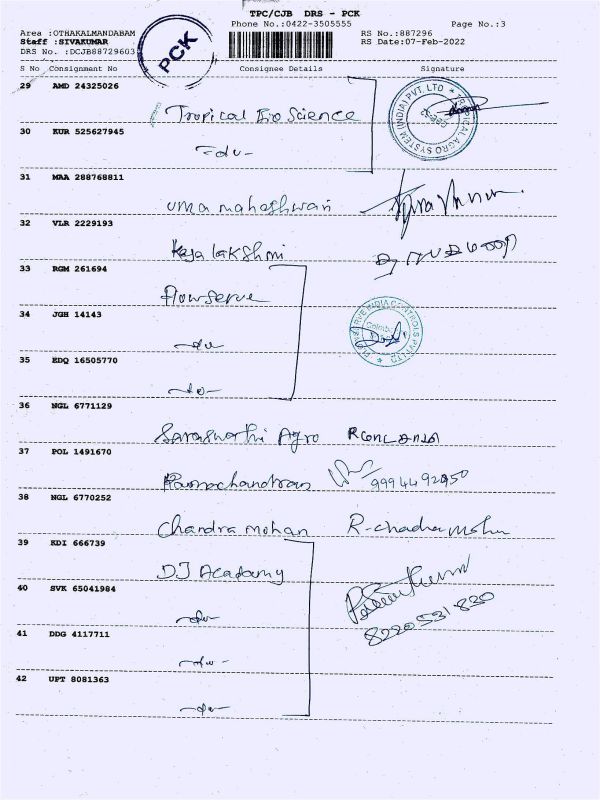 TPC/CJB DRS - PCK
Phone No.:0422-3505555
Page No.:3
Area :OTHAKALMANDABAM
Staff :SIVAKUMAR
DRS No. :DCJB88729603
PCK
RS No.:887296
RS Date:07-Feb-2022
S No Consignment No Consignee Details Signature
29 AMD 24325026
Tropical Bio Science
TROPICAL AGRO SYSTEM (INDIA) PVT. LTD
30 KUR 525627945
-do-
31 MAA 288768811
uma maheshwari
32 VLR 2229193
Raja lakshmi
33 RGM 261694
Flowserve
34 JGH 14143
-do-
35 EDQ 16505770
-do-
36 NGL 6771129
Saraswathi Agro
37 POL 1491670
Ramachandran
38 NGL 6770252
Chandra mohan R-chadra mohan
39 KDI 666739
DJ Academy
40 SVK 65041984
-do-
8220531830
41 DDG 4117711
-do-
42 UPT 8081363
-do-